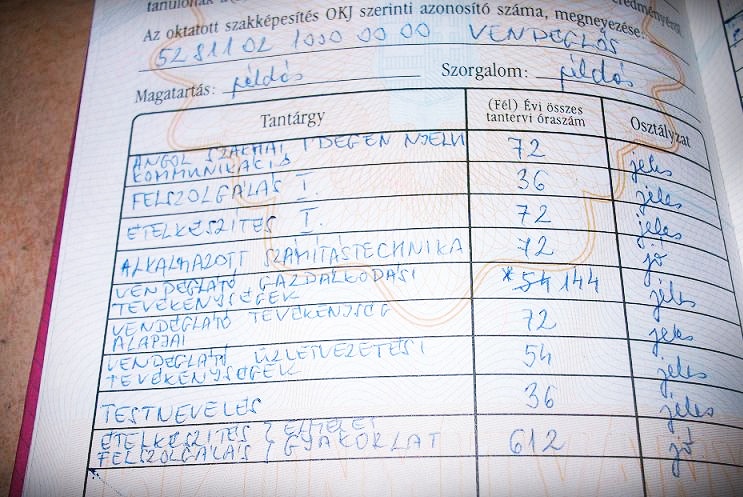 tanulónak a
eredményezi
Az oktatott szakképesítés OKJ szerinti azonosító száma, megnevezése:
52 811 02 1000 00 00 VENDÉGLŐS
Magatartás: példás Szorgalom: példás
Tantárgy (Fél) Évi összes tantervi óraszám Osztályzat
ANGOL SZAKMAI IDEGEN NYELVI
KOMMUNIKÁCIÓ 72 jeles
FELSZOLGÁLÁS I. 36 jeles
ÉTELKÉSZÍTÉS I. 72 jeles
ALKALMAZOTT SZÁMÍTÁSTECHNIKA 72 jó
VENDÉGLÁTÓ GAZDÁLKODÁSI
TEVÉKENYSÉGEK *54 144 jeles
VENDÉGLÁTÓ TEVÉKENYSÉG
ALAPJAI 72 jeles
VENDÉGLÁTÓ ÜZLETVEZETÉSI
TEVÉKENYSÉGEK 54 jeles
TESTNEVELÉS 36 jeles
ÉTELKÉSZÍTÉS ELMÉLET
FELSZOLGÁLÁS GYAKORLAT 612 jó